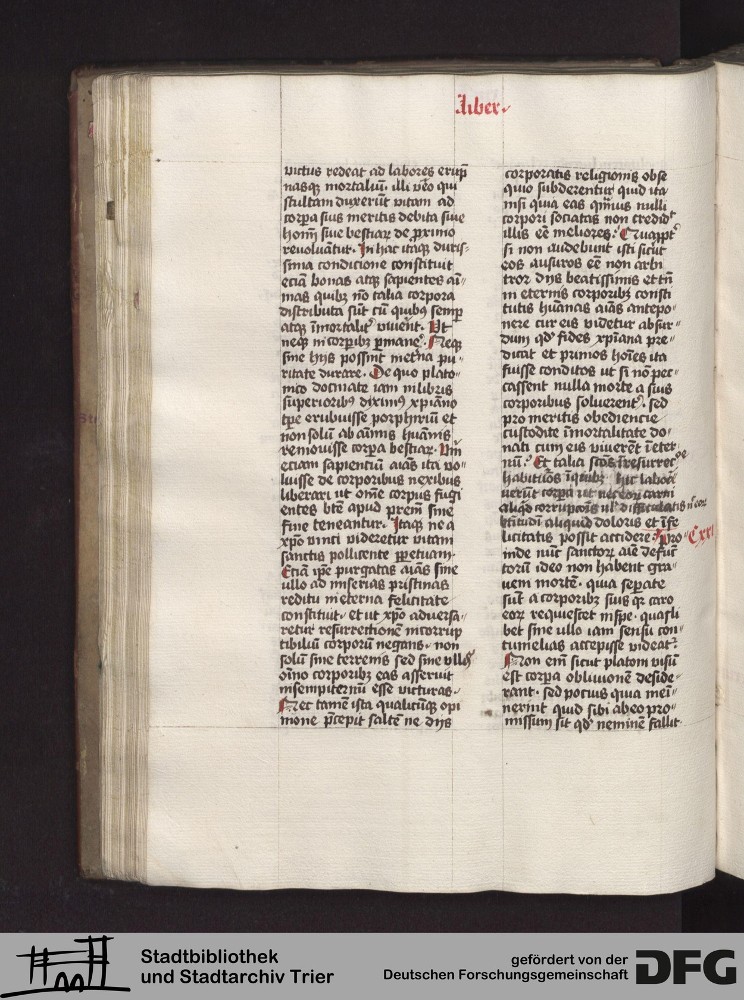 Liber
victus redeat ad labores erūp
nasq mortaliū. illi vēo qui
stultam duxerūt vitam ad
corpa suis meritis debita siue
homī siue bestiaꝝ de ꝓximo
reuoluantur. In hac itaq duris-
sima condicione constituit
eciā bonas atq sapientes aī-
mas quibꝫ nō talia corpora
distributa sūt cū quibꝫ semp
atq īmortalitʳ viuēnt. Vt
neq in corpibꝫ pmanēᵗ. Neq
sine hijs possint etērna pu-
ritate durare. De quo plato-
nico docmate iam in libris
superioribꝰ diximꝰ xpiāno
tpe erubuisse porphiriū et
non solū ab aīmis huāmis
remouisse corpa bestiaꝝ. Vm
eciam sapientiū aīas ita vo-
luisse de corporibus nexibus
liberari ut om̄e corpus fugi
entes bt̄e apud prēm sine
fine teneantur. Itaq ne a
xp̄o vinci videretur vitam
sanctis pollicente ꝑpetuam.
Eciā ip̄e purgatas aīas sine
ullo ad miserias pristinas
reditu in eterna felicitate
constituit. et ut xp̄o aduersa-
retur resurrectionē incorrup
tibiliū corporū negans. non
solū sine terrenis sed sine vllis
om̄īo corporibꝫ eas asseruit
in sempiternū esse victuras.
Nec tamē ista qualicūq opi
nione p̄cepit saltē ne dijs
corporatis religionis obse
quio subderentur quid ita
nisi quia eas quīuis nulli
corpori sociatas non credidᵗ
illis eē meliores. Quapptʳ
si non audebunt isti sicut
eos ausuros eē non arbi
tror dijs beatissimis et tn̄
in eternis corporibꝫ consti
tutis hūanas aīas antepo-
nere cur eis videtur absur-
dum qd̓ fides xpiāna pre-
dicat et primos hoīes ita
fuisse conditos ut si nō pec-
cassent nulla morte a suis
corporibus soluerentʳ. sed
pro meritis obediencie
custodite īmortalitate do-
nati cum eis viuerēt īeter-
nū. Et talia scōs ī resurrecᵒᵉ
habituros ī quibꝫ hic labora
uerūt corpa ut nec eoꝝ carni
aliqd̓ corrupcōis ul̓ difficultatis nᵉ eoꝝ
bt̄itudī aliquid doloris et īfe
licitatis possit accidere. Pro- Cxxi
inde nūc sanctoꝝ aīe defūc
torū ideo non habent gra-
uem mortē. quia sepate
sūt a corporibꝫ suis qꝛ caro
eoꝝ requiescit in spe. quasli
bet sine ullo iam sensu con-
tumelias accepisse videat.
Non em̄ sicut platoni visū
est corpa obliuionē deside-
rant. sed pocius quia mei-
nerint quid sibi ab eo pro-
missum sit qd̓ neminē fallit
Stadtbibliothek
und Stadtarchiv Trier
gefördert von der
Deutschen Forschungsgemeinschaft
DFG